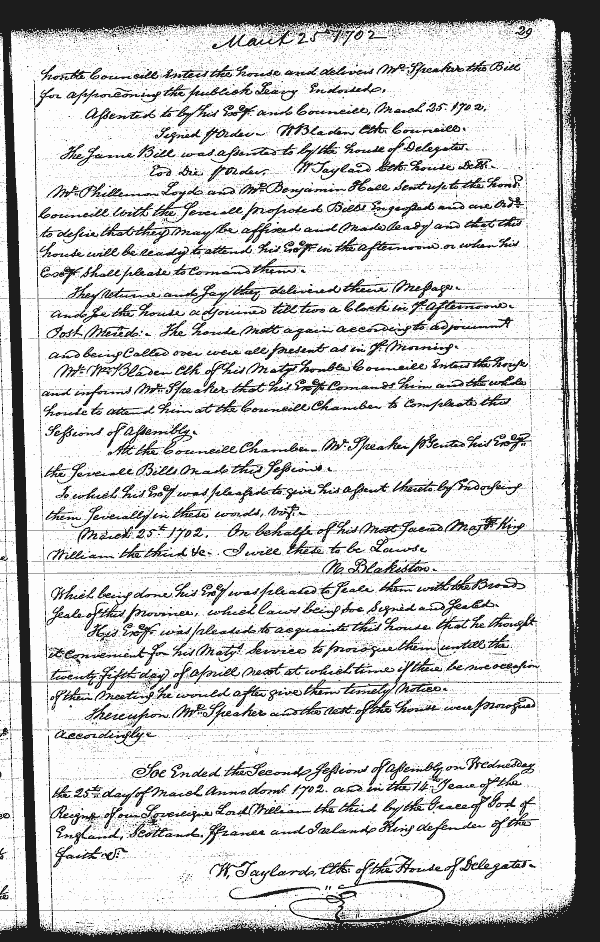 March 25th 1702
29
honble Councill Enters the house and delivers Mr. Speaker the Bill
for apporconing the publick Leavy Endorsed.
Assented to by his Exry. and Councill, March 25. 1702.
Signed p Order - W Bladen Clk Councill.
The same Bill was assented to by the house of Delegates.
Eod Die p Order. W Taylard Clk house Dels.
Mr. Phillemon Loyd and Mr. Benjamin Hall Sent up to the honb.
Councill with the Severall proposed Bills Engrossed and are Ordd.
to desire that they may be affixed and Made Ready and that this
house will be ready to attend his Exry. in the afternoon or when his
Excry. Shall please to comand them.
They returne and Say they delivered there Message.
and So the house adjourned till two a Clock in ye. Afternoone.
Post Merid: - The house mett again according to adjournmt
and being Called over were all present as in ye. Morning.
Mr. Wm. Bladen Clk of his Matys honble Councill Enters the house
and informs Mr. Speaker that his Exry. Comands him and the whole
house to attend him at the Councill Chamber to Compleate this
Sessions of Assembly.
At the Councill Chamber. Mr. Speaker pSented his Excy.
the Severall Bills Made this Sessions.
To which his Exry was pleased to give his assent thereto by Endorsing
them Severally in these words, vizt.
March 25th. 1702. On behalfe of his Most Sacred Majty. King
William the third &c. I will these to be Laws.
N. Blakiston.
Which being done his Exry was pleased to Seale them with the Broad
Seale of this Province, which laws being Soe Signed and Sealed.
His Exry. was pleased to acquainte this house that he thought
it Convenient for his Matys. Service to prorogue them untill the
twenty fifth day of Aprill next at which time if there be no occasion
of their Meeting he would after give them timely Notice.
Thereupon Mr. Speaker and the rest of the house were prorogued
accordingly.
Soe Ended the Second Sessions of Assembly on Wednesday
the 25th. day of March Anno dom. 1702. and in the 14th. Yeare of the
Reigne of our Sovereigne Lord William the third by the Grace of God of
England, Scotland, ffrance and Ireland King defender of the
faith &c.
W. Taylard, Clk. of the House of Delegates.